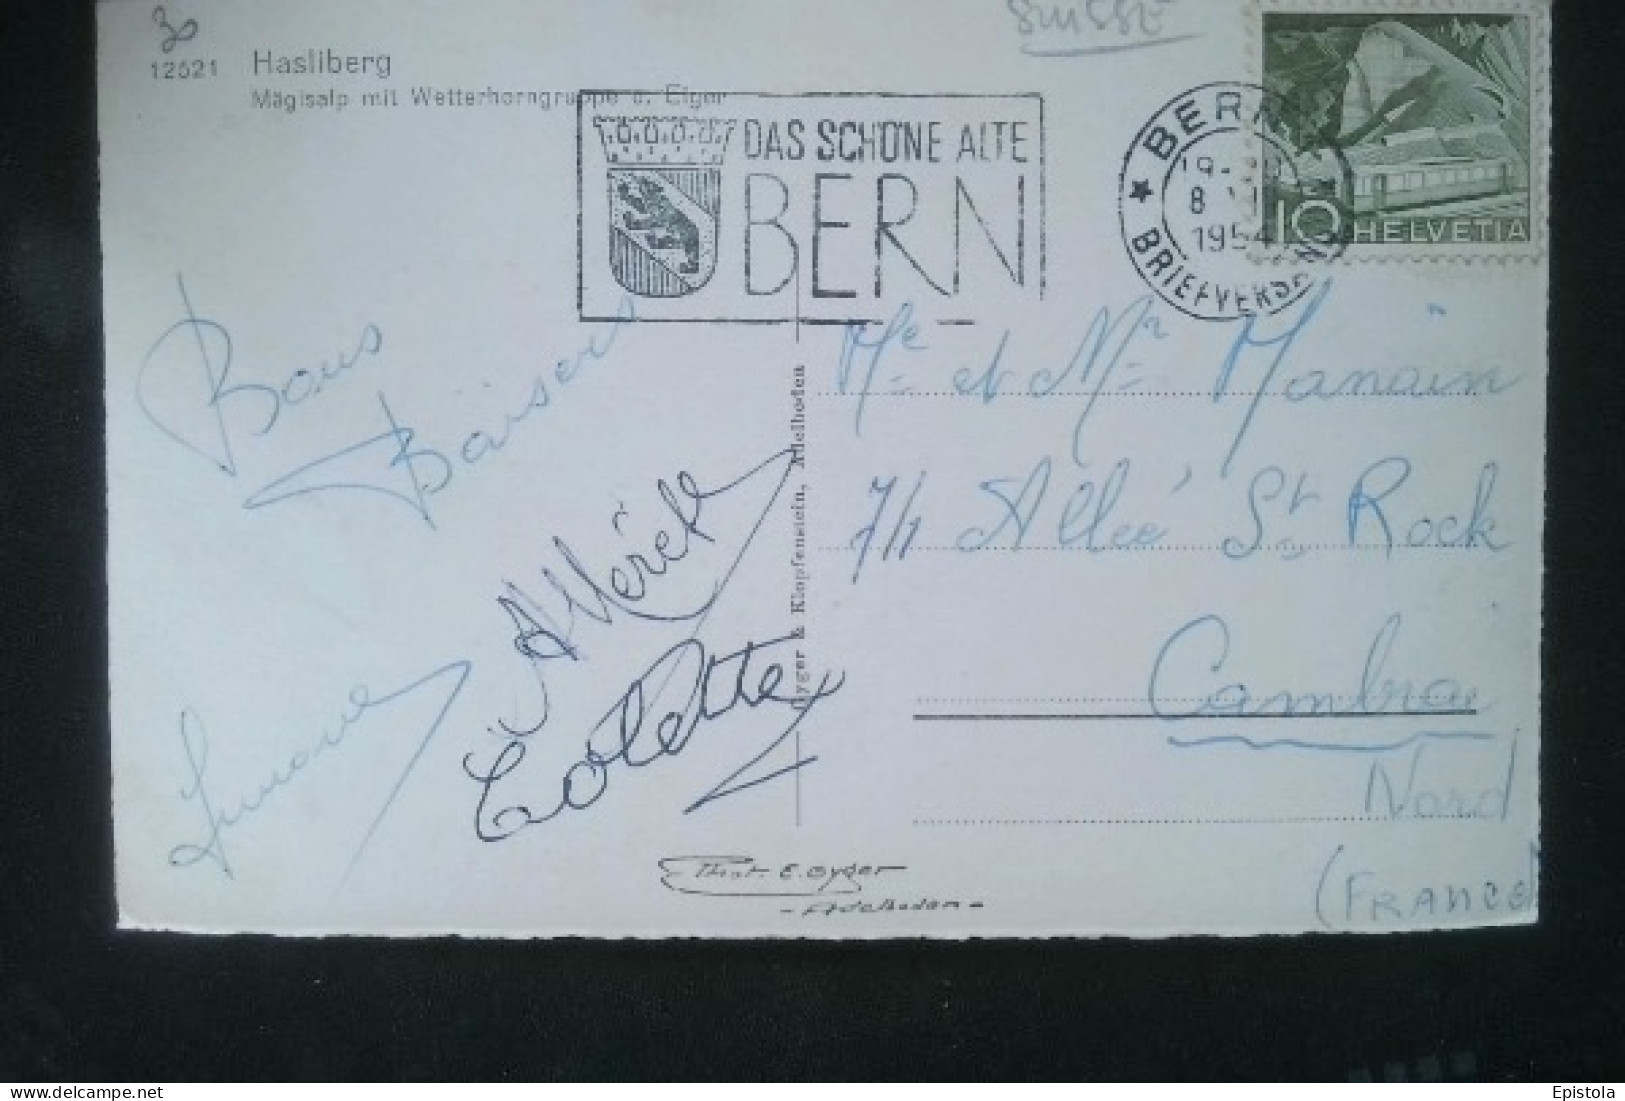 SUISSE
30
12521 Hasliberg
Mägisalp mit Wetterhorngruppe u. Eiger
DAS SCHÖNE ALTE
BERN
BERN
8
1954
BRIEFVERSAND
10 HELVETIA
Bons
Baisers
Colette
Simone
Gyger & Klopfenstein, Adelboden
Me et Mr Manain
7/1 Allée St Rock
Cambrai
Nord
(FRANCE)
Phot. E. Gyger
- Adelboden -
Epistola